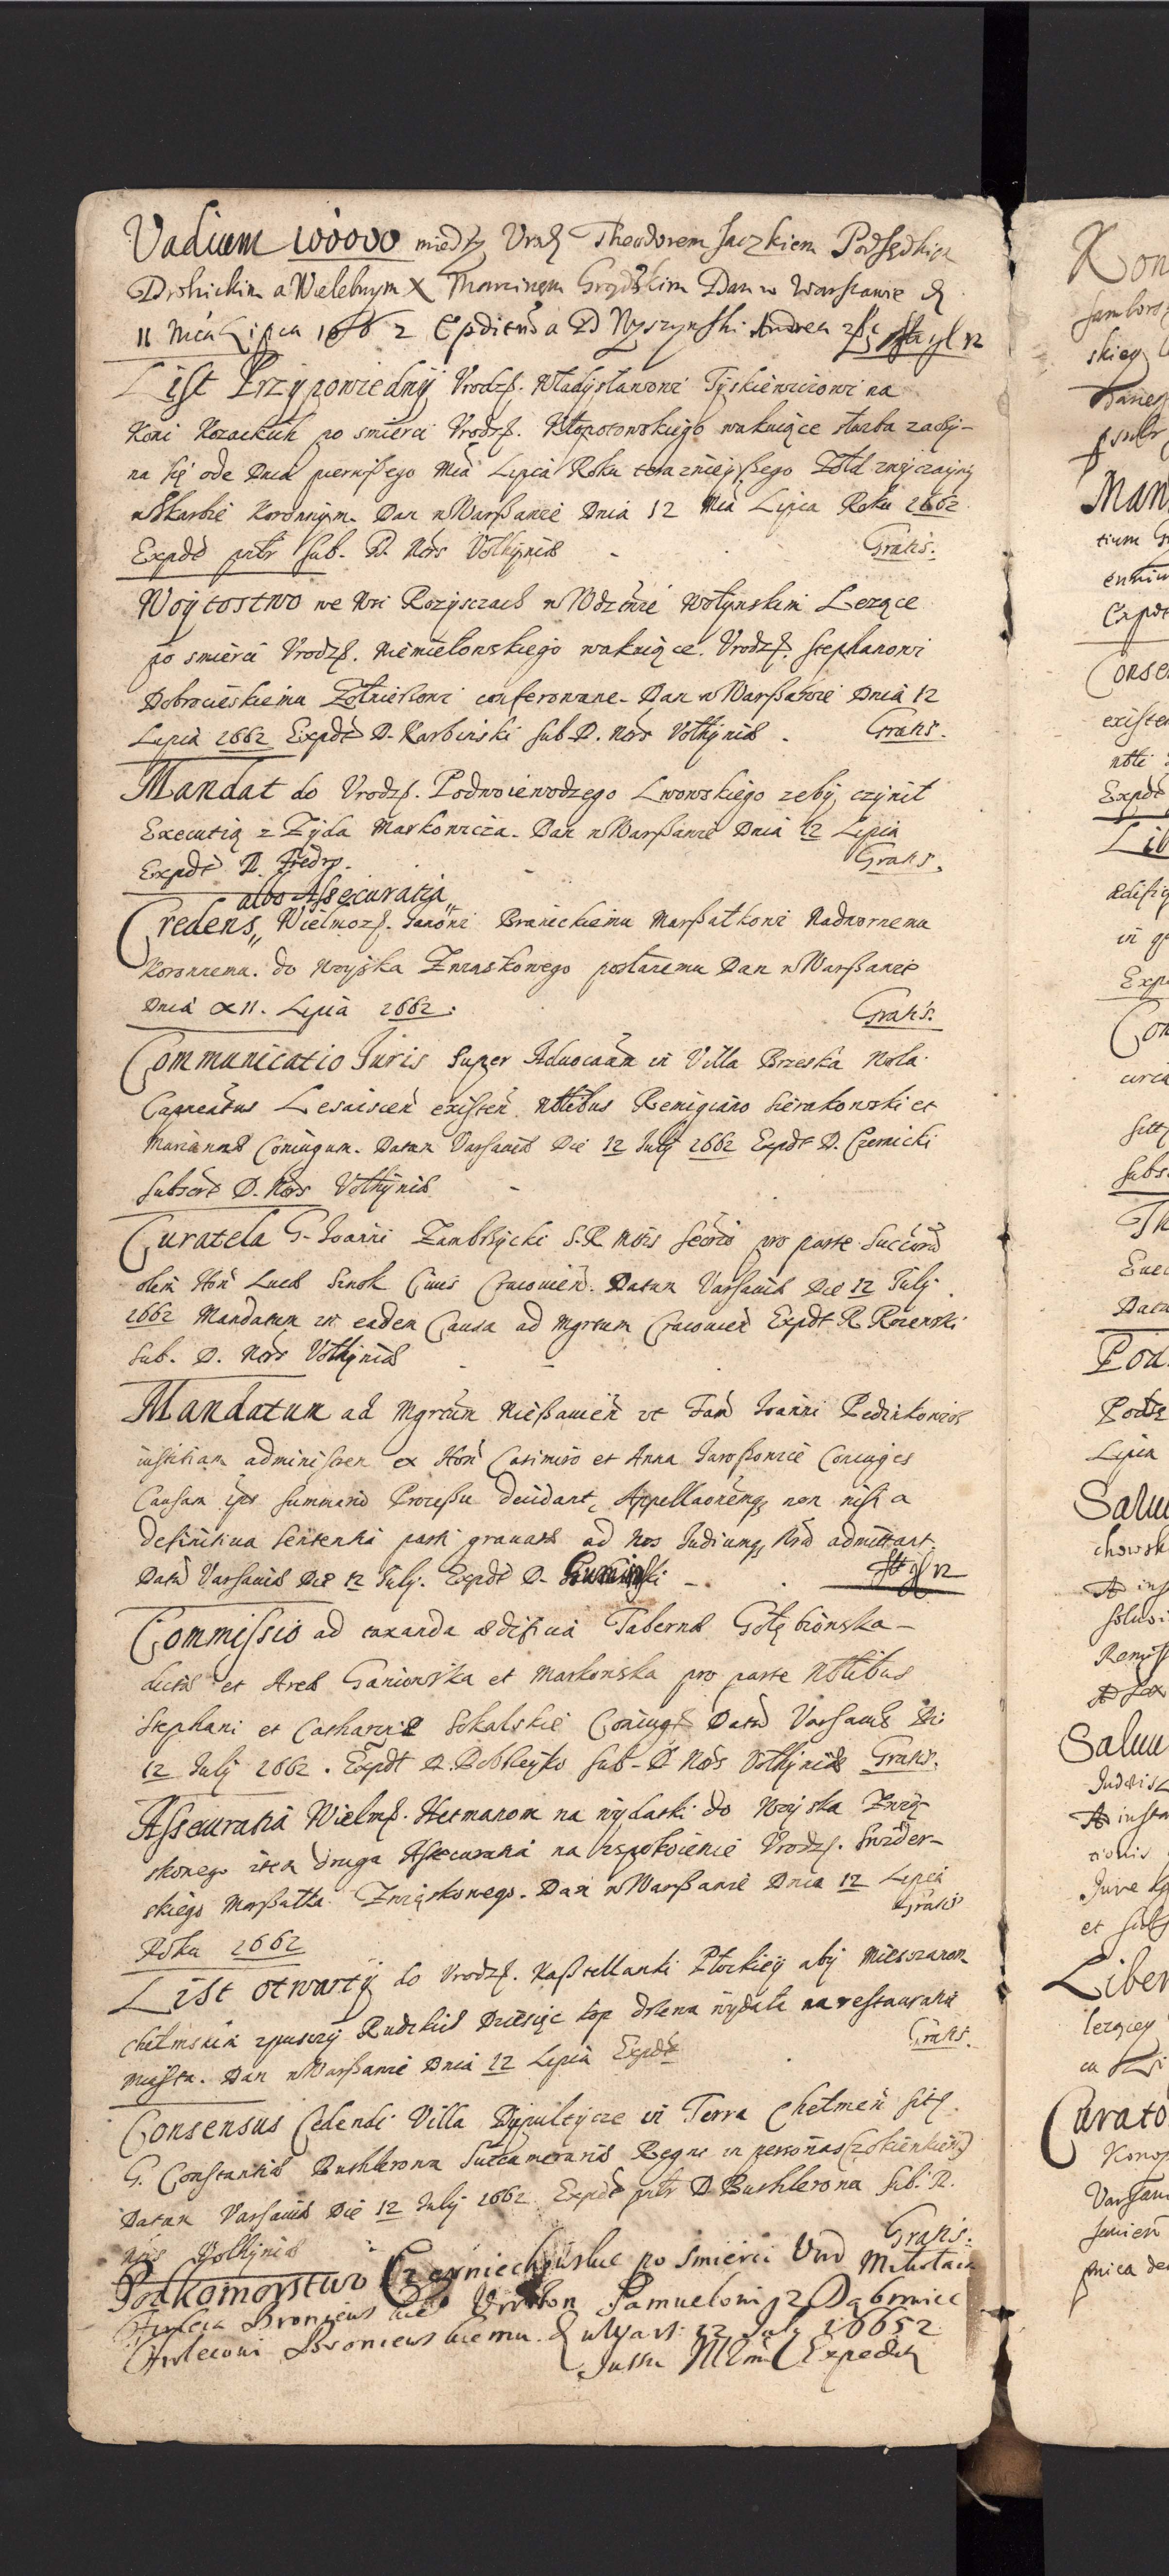 Vadium 10000 miedzy Vrodz Theodorem Jaczkiem Podsędkię
Drohickim a Wielebnym X Marcinem Grodzkim Dan w Warszawie d
11 Mca Lipca 1662 Expditũ a D Wyszynski Andrea gl 12
List Przypowiedny Vrodzß. Władysławowi Tyskiewiczowi na
Koni Kozackich po smierci Vrodzß. Kłopotowskiego wakuiące służba zaczy-
na się ode Dnia pierwßego Mca Lipca Roku teraznieyßego Zołd zwyczayny
w Skarbie Koronnym. Dan w Warßawie Dnia 12 Mca Lipca Roku 1662
Expdt pntr sub. R. Nors Volhyniae Gratis.
Woytostwo we Wsi Rozyszczach w Wdztwie Wołynskim Lezące
po smierci Vrodzß. Niemiełowskiego wakuiące. Vrodzß. Stephanowi
Dobrocieskiemu Zołnierzowi conferowane. Dan w Warßawie Dnia 12
Lipca 1662 Expdt D. Karbinski sub D. Nors Volhyniae. Gratis.
Mandat do Vrodzß. Podwoiewodzego Lwowskiego zeby czynił
Executią z Zyda Markowicza. Dan w Warßawie Dnia 12 Lipca
Expdt D. Fredro. Gratis.
albo Assecuratia
Credens Wielmozß. Janowi Branickiemu Marßałkowi Nadwornemu
Koronnemu. do Woyska Zwiąskowego posłanemu Dan w Warßawie
Dnia 11. Lipca 1662. Gratis.
Communicatio Juris super Advocatiã in Villa Brzeska Wola
Capneatus Lesaiscen existeñ Nobilibus Remigiano Sierakowski et
Marianna Coniugum. Datum Varsaviae Die 12 July 1662 Expdt D. Czernicki
subscrt D. Nors Volhyniae
Curatela G. Joanni Zambrzycki S. R. Mtis Secrio pro parte Succorũ
olim Hon Lucae Sznok Civis Cracovien. Datum Varsaviae Die 12 July
1662 Mandatum in eadem Causa ad Mgrtum Cracovien Expdt R. Rozenski
Sub. D. Nors Volhyniae
Mandatum ad Mgrtum Nießavien ut Fam Joanni Pedzinkowicz
iustitiam administren ex Hon Casimiro et Anna Jaroßowicè Coniuges
Causam ipo summario Processu decidant, Appellaonemq non nisi a
definitiva sententia parti gravatae ad Nos Judiumq Nrũ admittant.
Datũ Varsaviae Die 12 July. Expdt D. gl 12
Commissio ad taxanda aedificia Tabernae Gołębiowska
dictae et Areae Ganiowska et Markowska pro parte Nobilibus
Stephani et Catharinae Sokalskie Coniugũ Datũ Varsaviae Die
12 July 1662. Expdt D. Dobkeyko sub. D. Nors Volhyniae Gratis.
Assecuratia Wielmß. Hetmanom na wydatki do Woyska Zwią-
skowego item druga Assecuratia na uspokoienie Vrodzß. Swider-
skiego Marßałka Zwiąskowego. Dan w Warßawie Dnia 12 Lipca
Roku 1662 Gratis
List otwarty do Vrodzß. Kaßtellanki Płockiey aby Mieszczanom
chełmskim z puszczy Rudzkiey Dziesięc kop drzewa wydała na restauratią
miasta. Dan w Warßawie Dnia 12 Lipca Expdt Gratis.
Consensus Cedendi Villa Depultycze in Terra Chełmeñ sitẽ.
G. Constantiae Bushlerowa Succamerariae Regni in personas (Zokienkien)
Datum Varsaviae Die 12 July 1662 Expdt pntr D Bushlerowa Sub. R.
Nors Volhyniae Gratis.
Podkomorstwo Czerniechowskie po smierci Urd Mikołaia
Broniewskiego Urodzon Samuelowi z Dąbrowice
Broniewskiemu. d ut supra: 12 July 1662
Jussu Expedit